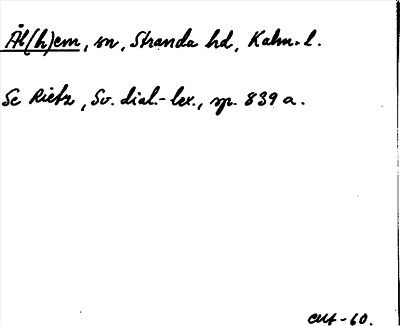 Ål(h)em, sn, Stranda hd, Kalm. l.
Se Rietz, Sv. dial.-lex., sp. 839 a.